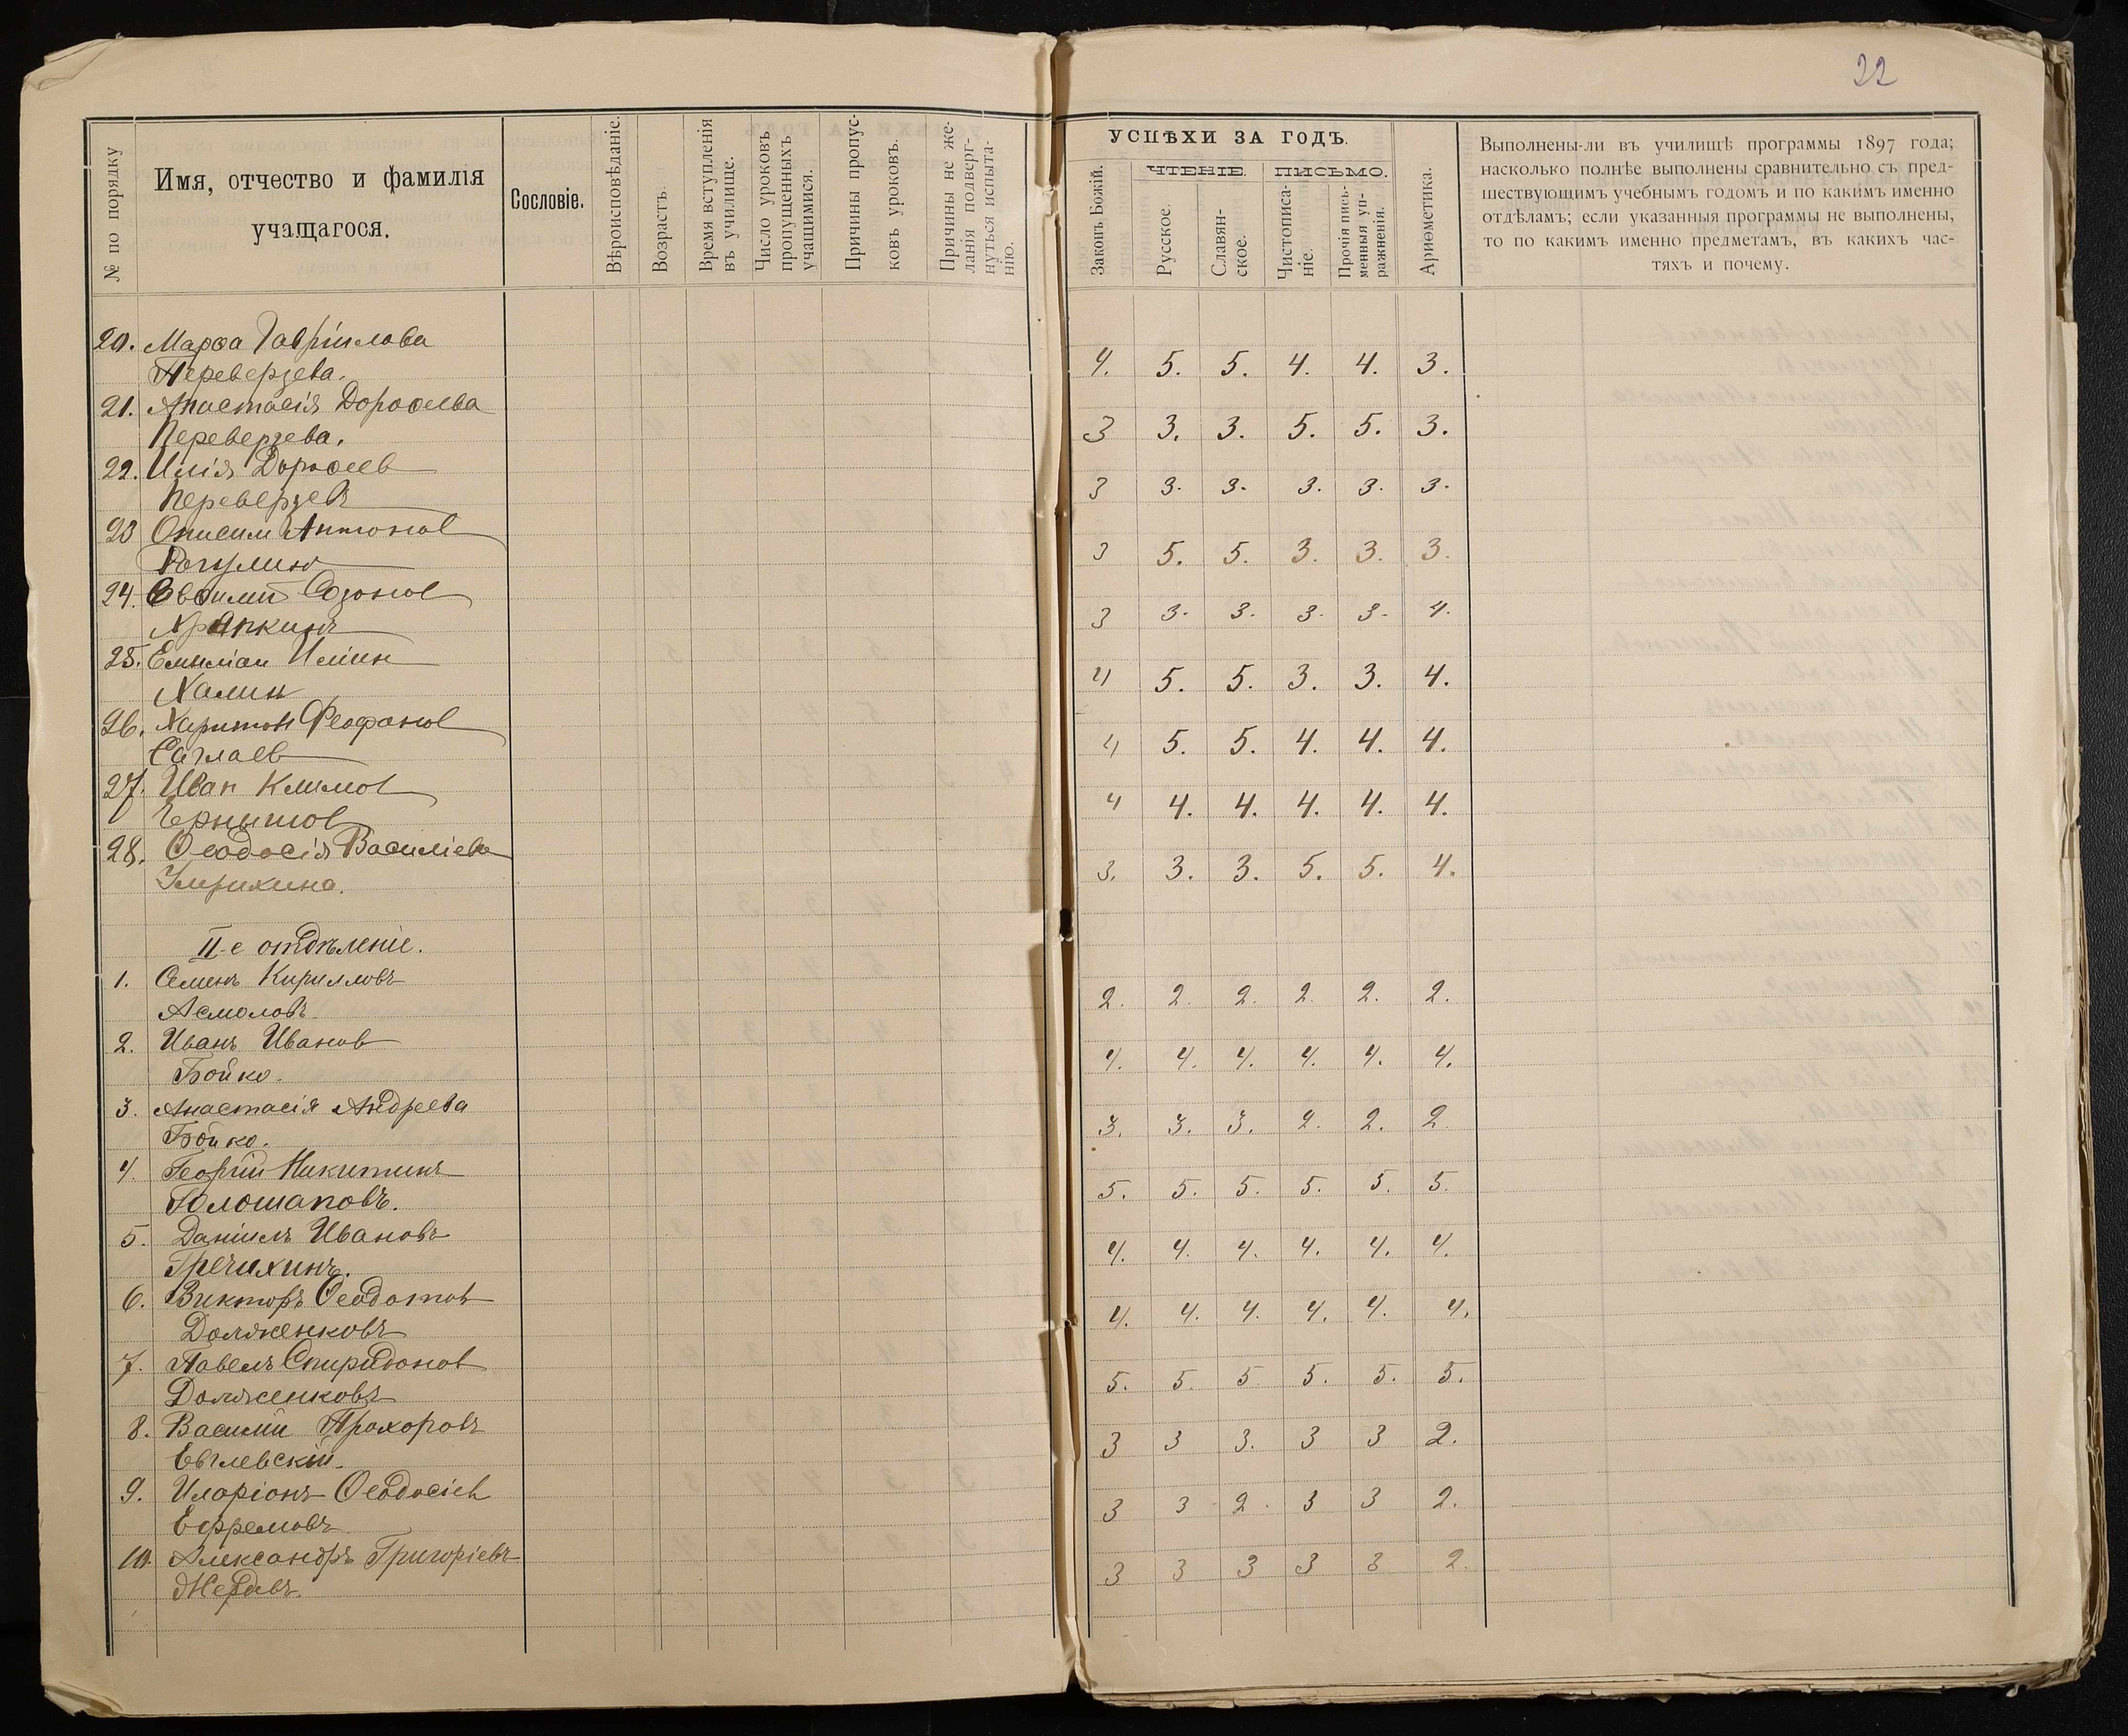 22
№ по порядку
Имя, отчество и фамилія
учащагося.
Сословіе.
Вѣроисповѣданіе.
Возрастъ.
Время вступленія
въ училище.
Число уроковъ
пропущенныхъ
учащимися.
Причины пропус-
ковъ уроковъ.
Причины не же-
ланія подверг-
нуться испыта-
нію.
УСПѢХИ ЗА ГОДЪ.
Законъ Божій.
ЧТЕНІЕ.
Русское.
Славян-
ское.
ПИСЬМО.
Чистописа-
ніе.
Прочія пись-
менныя уп-
ражненія.
Ариѳметика.
Выполнены-ли въ училищѣ программы 1897 года;
насколько полнѣе выполнены сравнительно съ пред-
шествующимъ учебнымъ годомъ и по какимъ именно
отдѣламъ; если указанныя программы не выполнены,
то по какимъ именно предметамъ, въ какихъ час-
тяхъ и почему.
20. Марѳа Гавріилова
Переверзева. 4. 5. 5. 4. 4. 3.
21. Анастасія Дороѳеева
Переверзева. 3 3. 3. 5. 5. 3.
22. Илія Дороѳеев
Переверзевъ 3 3. 3. 3. 3. 3.
23 Онисим Антонов
Рагулин 3 5. 5. 3. 3. 3.
24. Евѳимій Созонов
Храпкинъ 3 3. 3. 3. 3. 4.
25. Емиліан Иліин
Халин 4 5. 5. 3. 3. 4.
26. Харитон Феофанов
Саглаев 4 5. 5. 4. 4. 4.
27. Иван Климов
Чернышов 4 4. 4. 4. 4. 4.
28. Ѳеодосія Василіева
3. 3. 3. 5. 5. 4.
II-е отдѣленіе.
1. Семенъ Кирилловъ
Асмоловъ. 2. 2. 2. 2. 2. 2.
2. Иванъ Иванов
Бойко. 4. 4. 4. 4. 4. 4.
3. Анастасія Андреева
Бойко. 3. 3. 3. 2. 2. 2
4. Георгій Никитинъ
Голошаповъ. 5. 5. 5. 5. 5. 5.
5. Даніилъ Ивановъ
Гречихинъ. 4. 4. 4. 4. 4. 4.
6. Викторъ Ѳеодотов
Долженковъ 4. 4. 4. 4. 4. 4.
7. Павелъ Спиридонов
Долженковъ 5. 5. 5 5. 5. 5.
8. Василій Прохоровъ
Евглевскій. 3 3 3. 3 3 2.
9. Иларіонъ Ѳеодосіев
Ефремовъ 3 3 2. 3 3 2.
10. Александръ Григоріевъ
Жердевъ. 3 3 3 3 3 2.